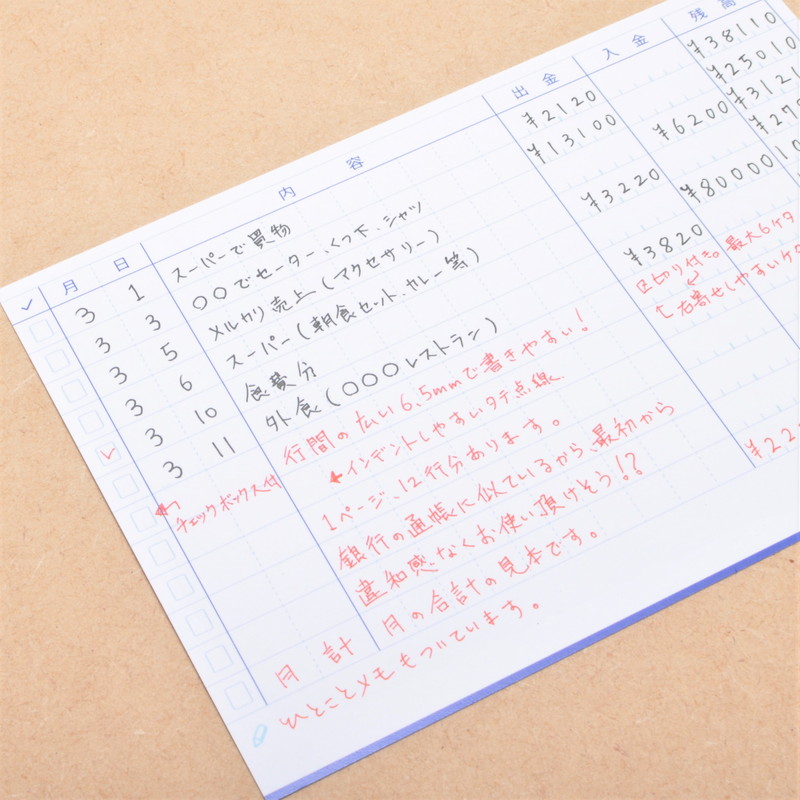 ✓ 月 日 内容 出金 入金 残高
3 1 スーパーで買物 ¥2120 ¥38110
3 3 〇〇でセーター、くつ下、シャツ ¥13100 ¥25010
3 5 メルカリ売上(マクセサリー) ¥6200
3 6 スーパー(朝食セット、カレー等) ¥3220
3 10 食費分 ¥80000
3 11 外食(〇〇〇レストラン) ¥3820
行間の広い6.5mmで書きやすい!
区切り付き。最大6ケタ
↑右寄せしやすいケタ
←インデントしやすいタテ点線
チェックボックス付
1ページ、12行分あります。
銀行の通帳に似ているから、最初から
違和感なくお使い頂けそう!?
月計 月の合計の見本です。
ひとことメモもついています。